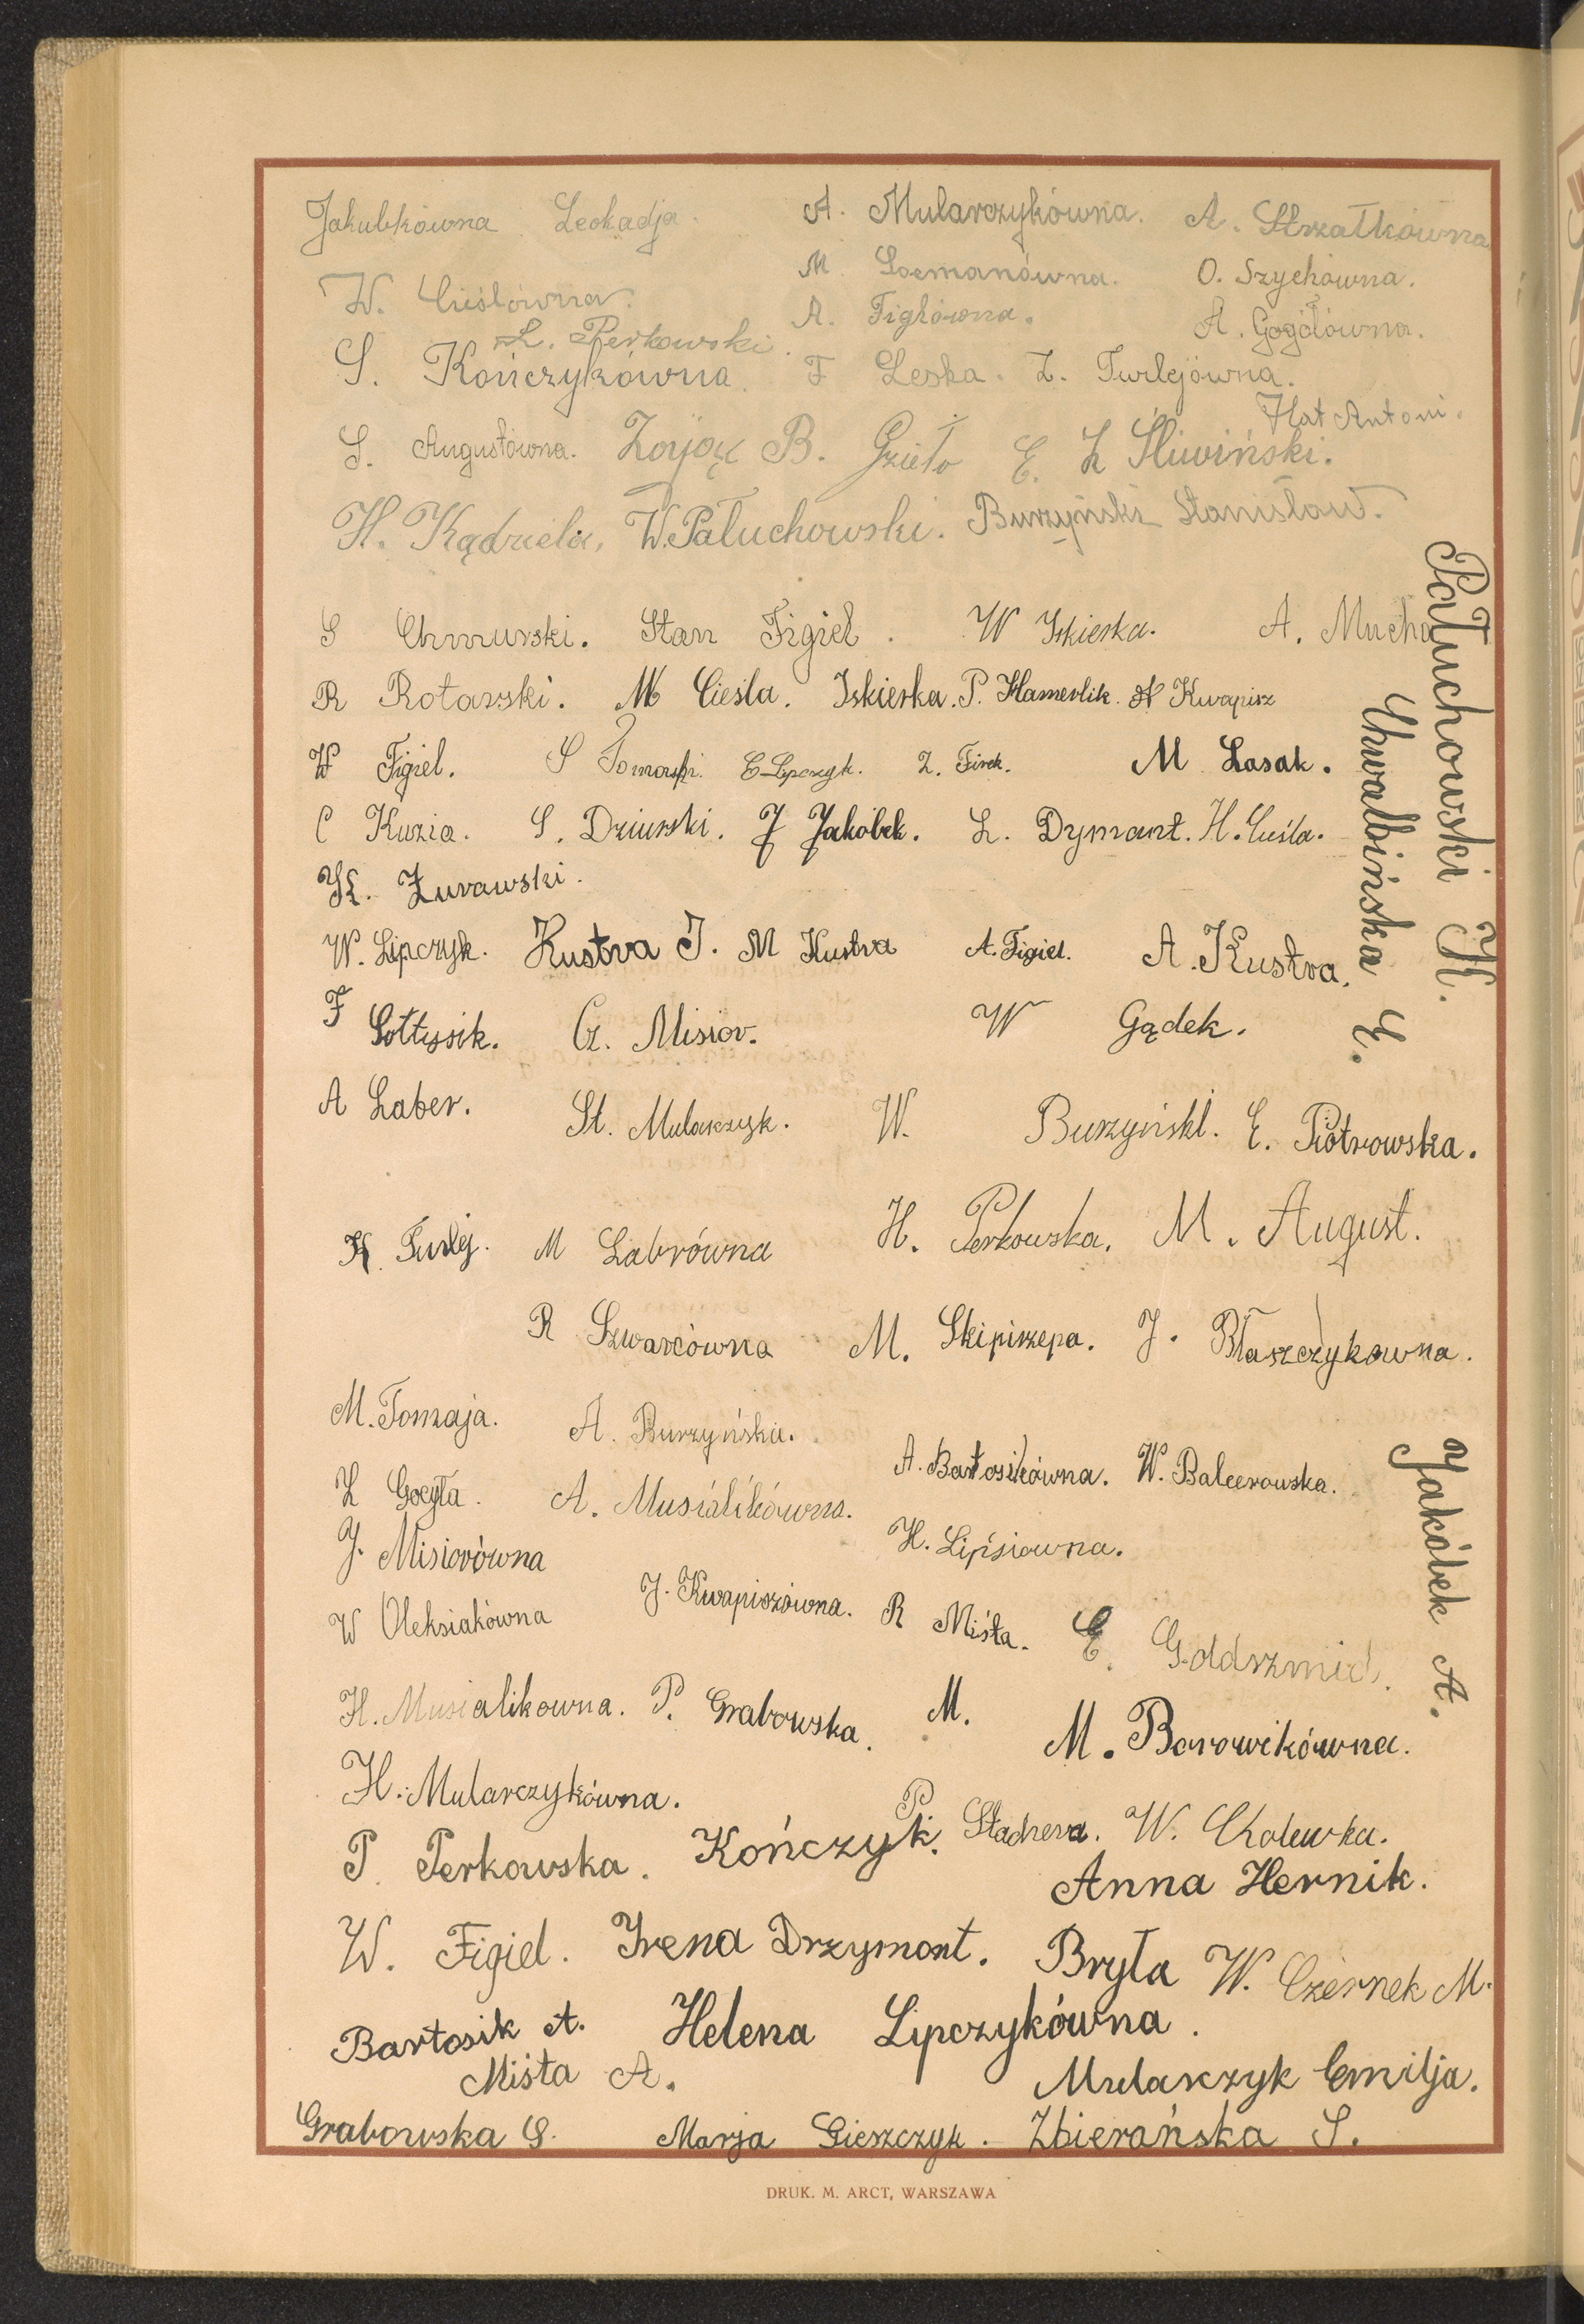 Jakubkówna Leokadja. A. Mularczykówna. A. Strzałkówna
W. Cieślówna. M. Locmanówna. O. Szychówna.
L. Perkowski. A. Figlówna. A. Gogółówna.
S. Kończykówna. F Leska. Z. Turlejówna.
Flat Antoni.
S. Augustówna. Zając B. Gzieło E. Z Śliwiński.
H. Kądziela, W. Pałuchowski. Burzyński Stanisław.
S Chmurski. Stan Figiel. W Iskierka. A. Mucha
R Rotarski. M Cieśla. Iskierka. P. Hamerlik. N Kwapisz
W Figiel. S Tomaski. E Lipczyk. Z. Firek. M Lasak.
C Kuzia. S. Dziurski. J Jakóbek. L. Dymant. H. Cieśla.
K. Żurawski.
W. Lipczyk. Kustra J. M Kustra A. Figiel. A. Kustra.
F Sołtysik. Cz. Misior. W Gądek.
A Laber. St. Mularczyk. W. Burzyński. E. Piotrowska.
K. Turlej. M Labrówna H. Perkowska. M. August.
R Szwarcówna M. Skipirzepa. J. Błaszczykówna.
M. Tomzaja. A. Burzyńska.
A. Bartosikówna. W. Balcerowska.
Z Gocyła. A. Musialikówna.
J. Misiorówna H. Lipsiówna.
W Oleksiakówna J. Kwapiszówna. R Miśta. E. Goldszmid.
H. Musialikowna. P. Grabowska. M. M. Borowikówna.
H. Mularczykówna.
P. Perkowska. Kończyk P. Stachera. W. Cholewka.
Anna Hernik.
W. Figiel. Irena Drzymont. Bryła W. Czernek M.
Bartosik A. Helena Lipczykówna.
Miśta A. Mularczyk Emilja.
Grabowska G. Marja Gieszczyk. Zbierańska S.
Pałuchowski K.
Chwalbińska E.
Jakóbek A.
DRUK. M. ARCT, WARSZAWA